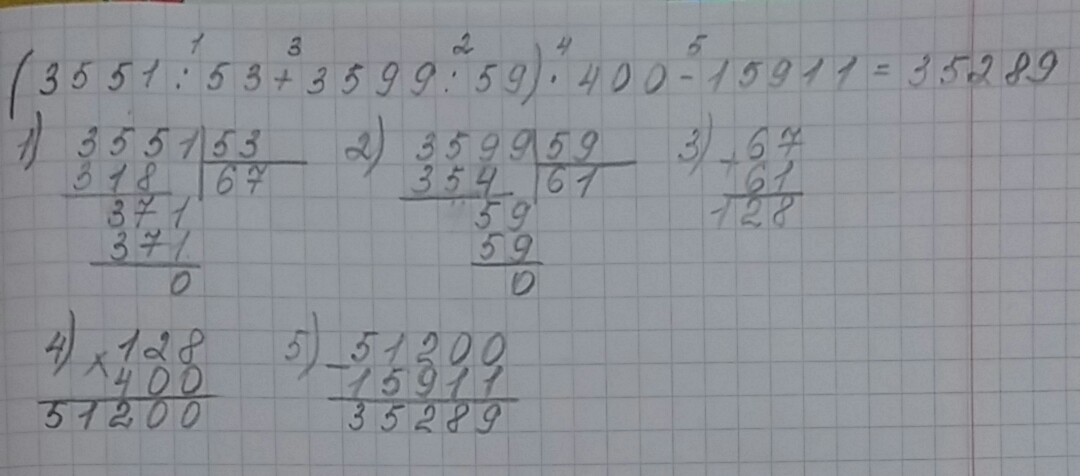 1 3 2 4 5
(3551 : 53 + 3599 : 59) · 400 - 15911 = 35289
1) 3551 53 2) 3599 59 3) + 67
318 67 354 61 61
371 59 128
371 59
0 0
4) × 128 5) - 51200
400 15911
51200 35289